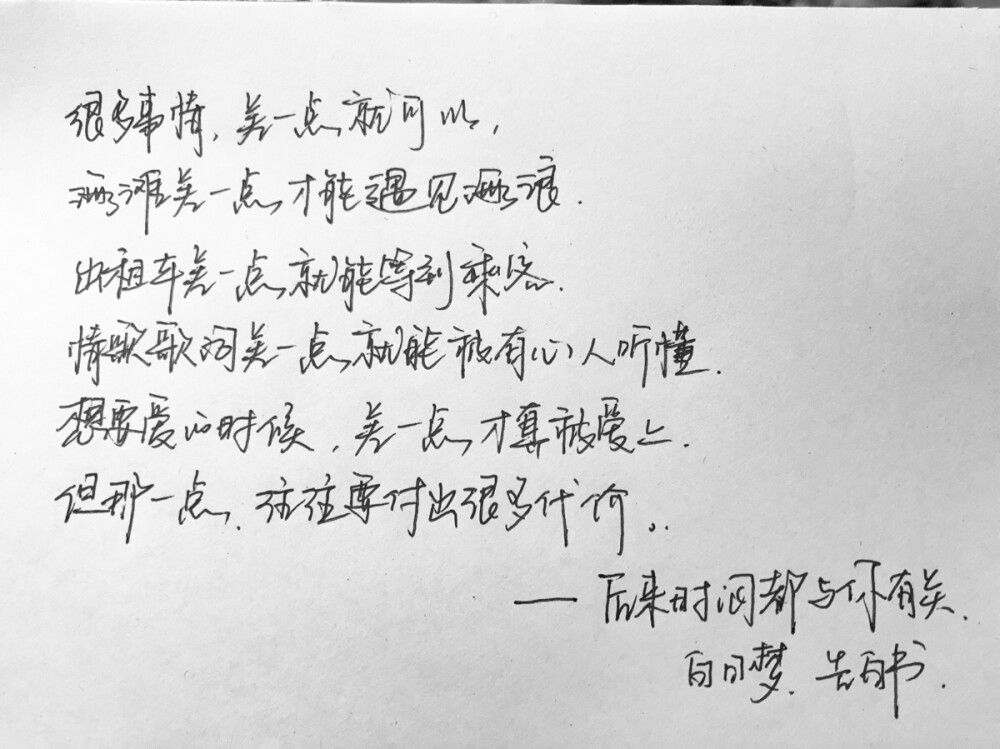 很多事情，差一点就可以，
海滩差一点才能遇见海浪.
出租车差一点就能等到乘客.
情歌歌词差一点就能被有心人听懂.
想要爱的时候，差一点才算被爱上.
但那一点，往往要付出很多代价。.
— 后来时间都与你有关.
白日梦.告白书.